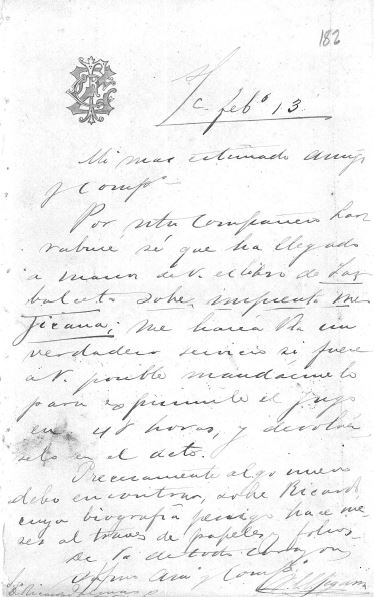 182
S/c feb° 13.
Mi mas estimado amigo
y Comp°
Por ntro Compañero Lar
rabure sé que ha llegado
a manos de V. el libro de
sobre imprenta me
jicana; me haria Vd un
verdadero servicio si fuere
a V. posible mandarmelo
para exprimirle el jugo
en 48 horas, y devolvér
selo en el acto.
Precisamente algo nuevo
debo encontrar, sobre Ricardo
cuya biografia persigo hace me
ses al traves de papeles y folios.
de V. de todo corazon
Affmo Am° y Comp°